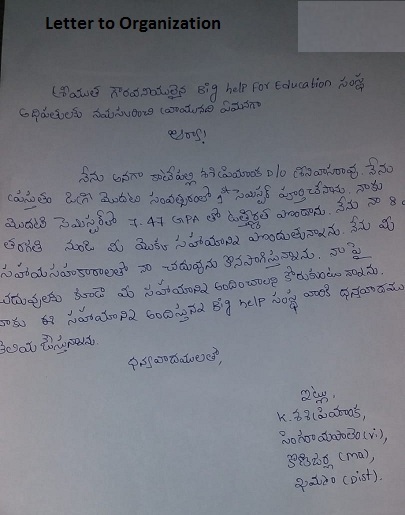 Letter to Organization
శ్రీయుత గౌరవనీయులైన Big help For Education సంస్థ
అధిపతులకు నమస్కరించి వ్రాయునది ఏమనగా
ఆర్యా!
నేను అనగా కాటేపల్లి శశిప్రియాంక D/o శ్రీనివాసరావు. నేను
ప్రస్తుతం డిగ్రీ మొదటి సంవత్సరంలో 1st సెమిస్టర్ పూర్తిచేసాను. నాకు
మొదటి సెమిస్టర్‌లో 7.47 GPA తో ఉత్తీర్ణత పొందాను. నేను నా 8వ
తరగతి నుండి మీ యొక్క సహాయాన్ని పొందుతున్నాను. నేను మీ
సహాయసహకారాలతో నా చదువును కొనసాగిస్తున్నాను. నా పై
చదువులకు కూడా మీ సహాయాన్ని అందించాలని కోరుకుంటున్నాను.
నాకు ఈ సహాయాన్ని అందిస్తున్న Big help సంస్థ వారికి ధన్యవాదము
తెలియజేస్తున్నాను.
ధన్యవాదములతో,
ఇట్లు,
K. శశిప్రియాంక,
సింగరాయపాలెం (vi),
కొణిజర్ల (md),
ఖమ్మం (Dist).